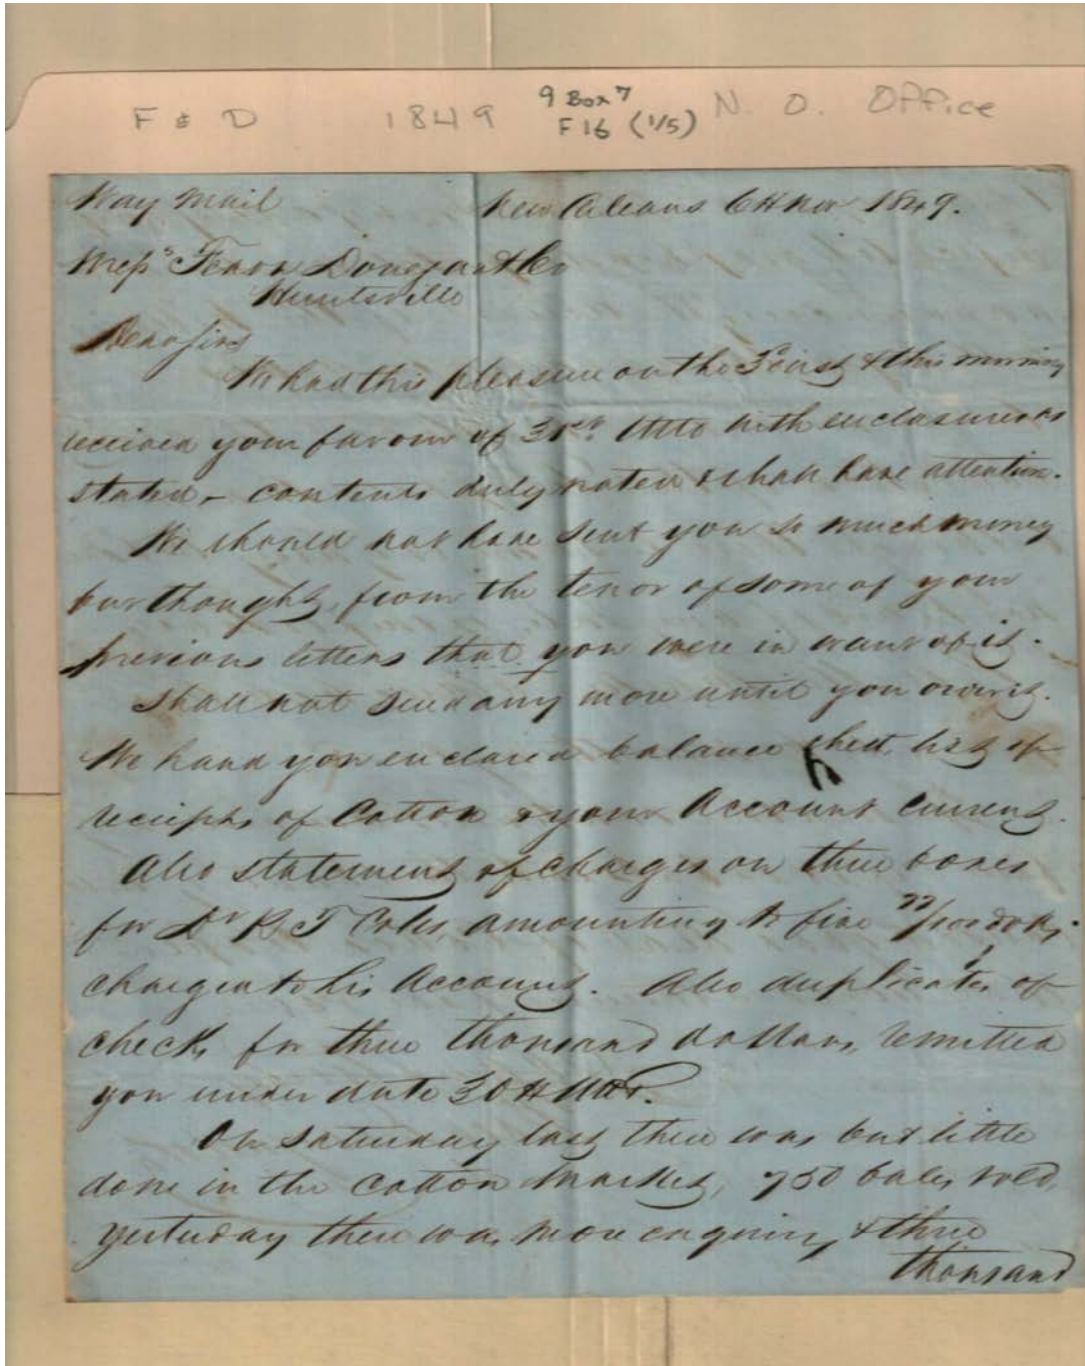 F & D 1849 9 Box 7 N. O. Office
F 16 (1/5)
Way Mail New Orleans 6th Nov 1849.
Messrs Fearn Donegan & Co
Huntsville
Dear Sirs
We had this pleasure on the First & this morning
received your favour of 31st Ulto with enclosures as
stated, - contents duly noted & shall have attention.
We should not have sent you so much money
but thought, from the tenor of some of your
previous letters that you were in want of it.
Shall not send any more until you order it.
We hand you enclosed balance sheet, list of
receipts of Cotton & your Account Current.
Also statement of charges on three boxes
for Dr B T Coles, amounting to five dolls;
charged to his Account. Also duplicates of
checks for three thousand dollars, remitted
you under date 30th Ulto.
On Saturday last there was but little
done in the Cotton Market, 750 bales sold,
yesterday there was more enquiry & three
thousand